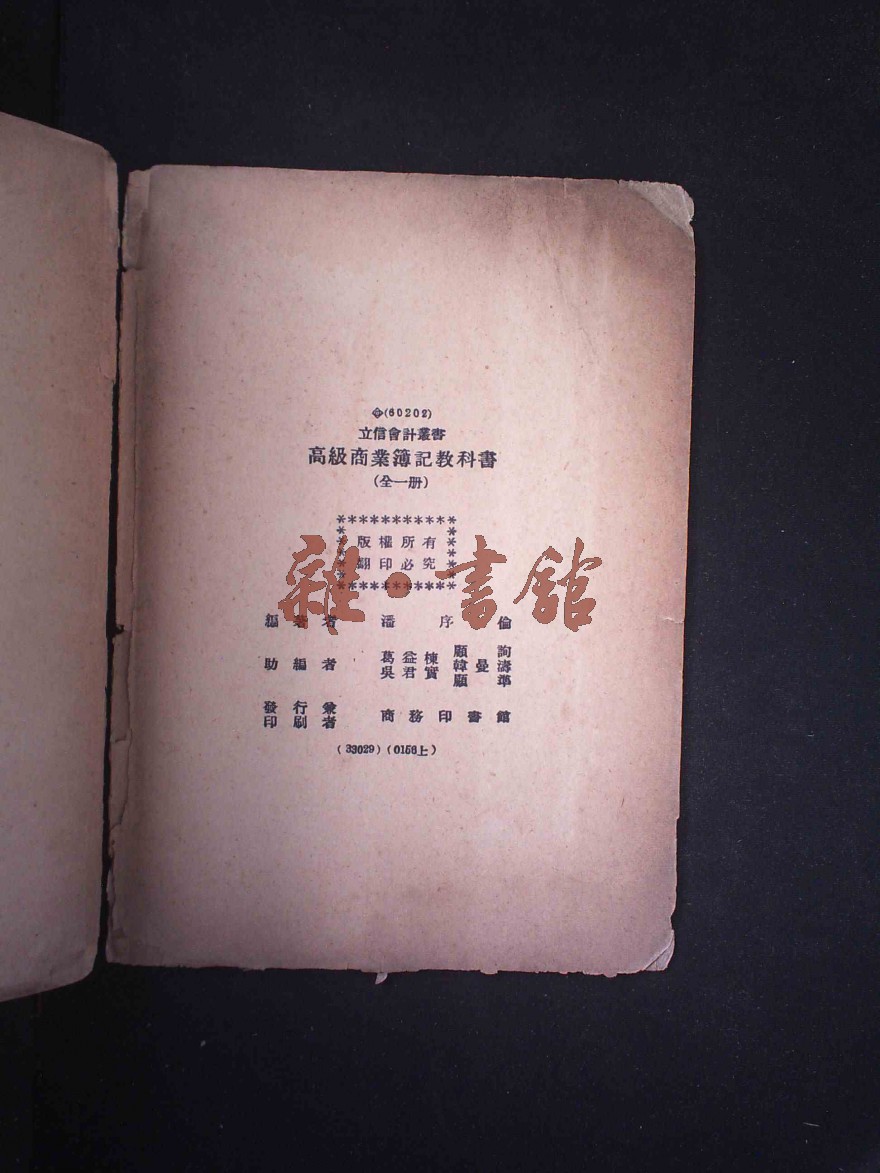 (60202)
立信會計叢書
高級商業簿記教科書
(全一册)
版權所有
翻印必究
雜·書館
編著者 潘序倫
助編者 葛益棟 顧詢
吳君實 韓曼濤
顧準
發行兼
印刷者 商務印書館
(33029)(0156上)